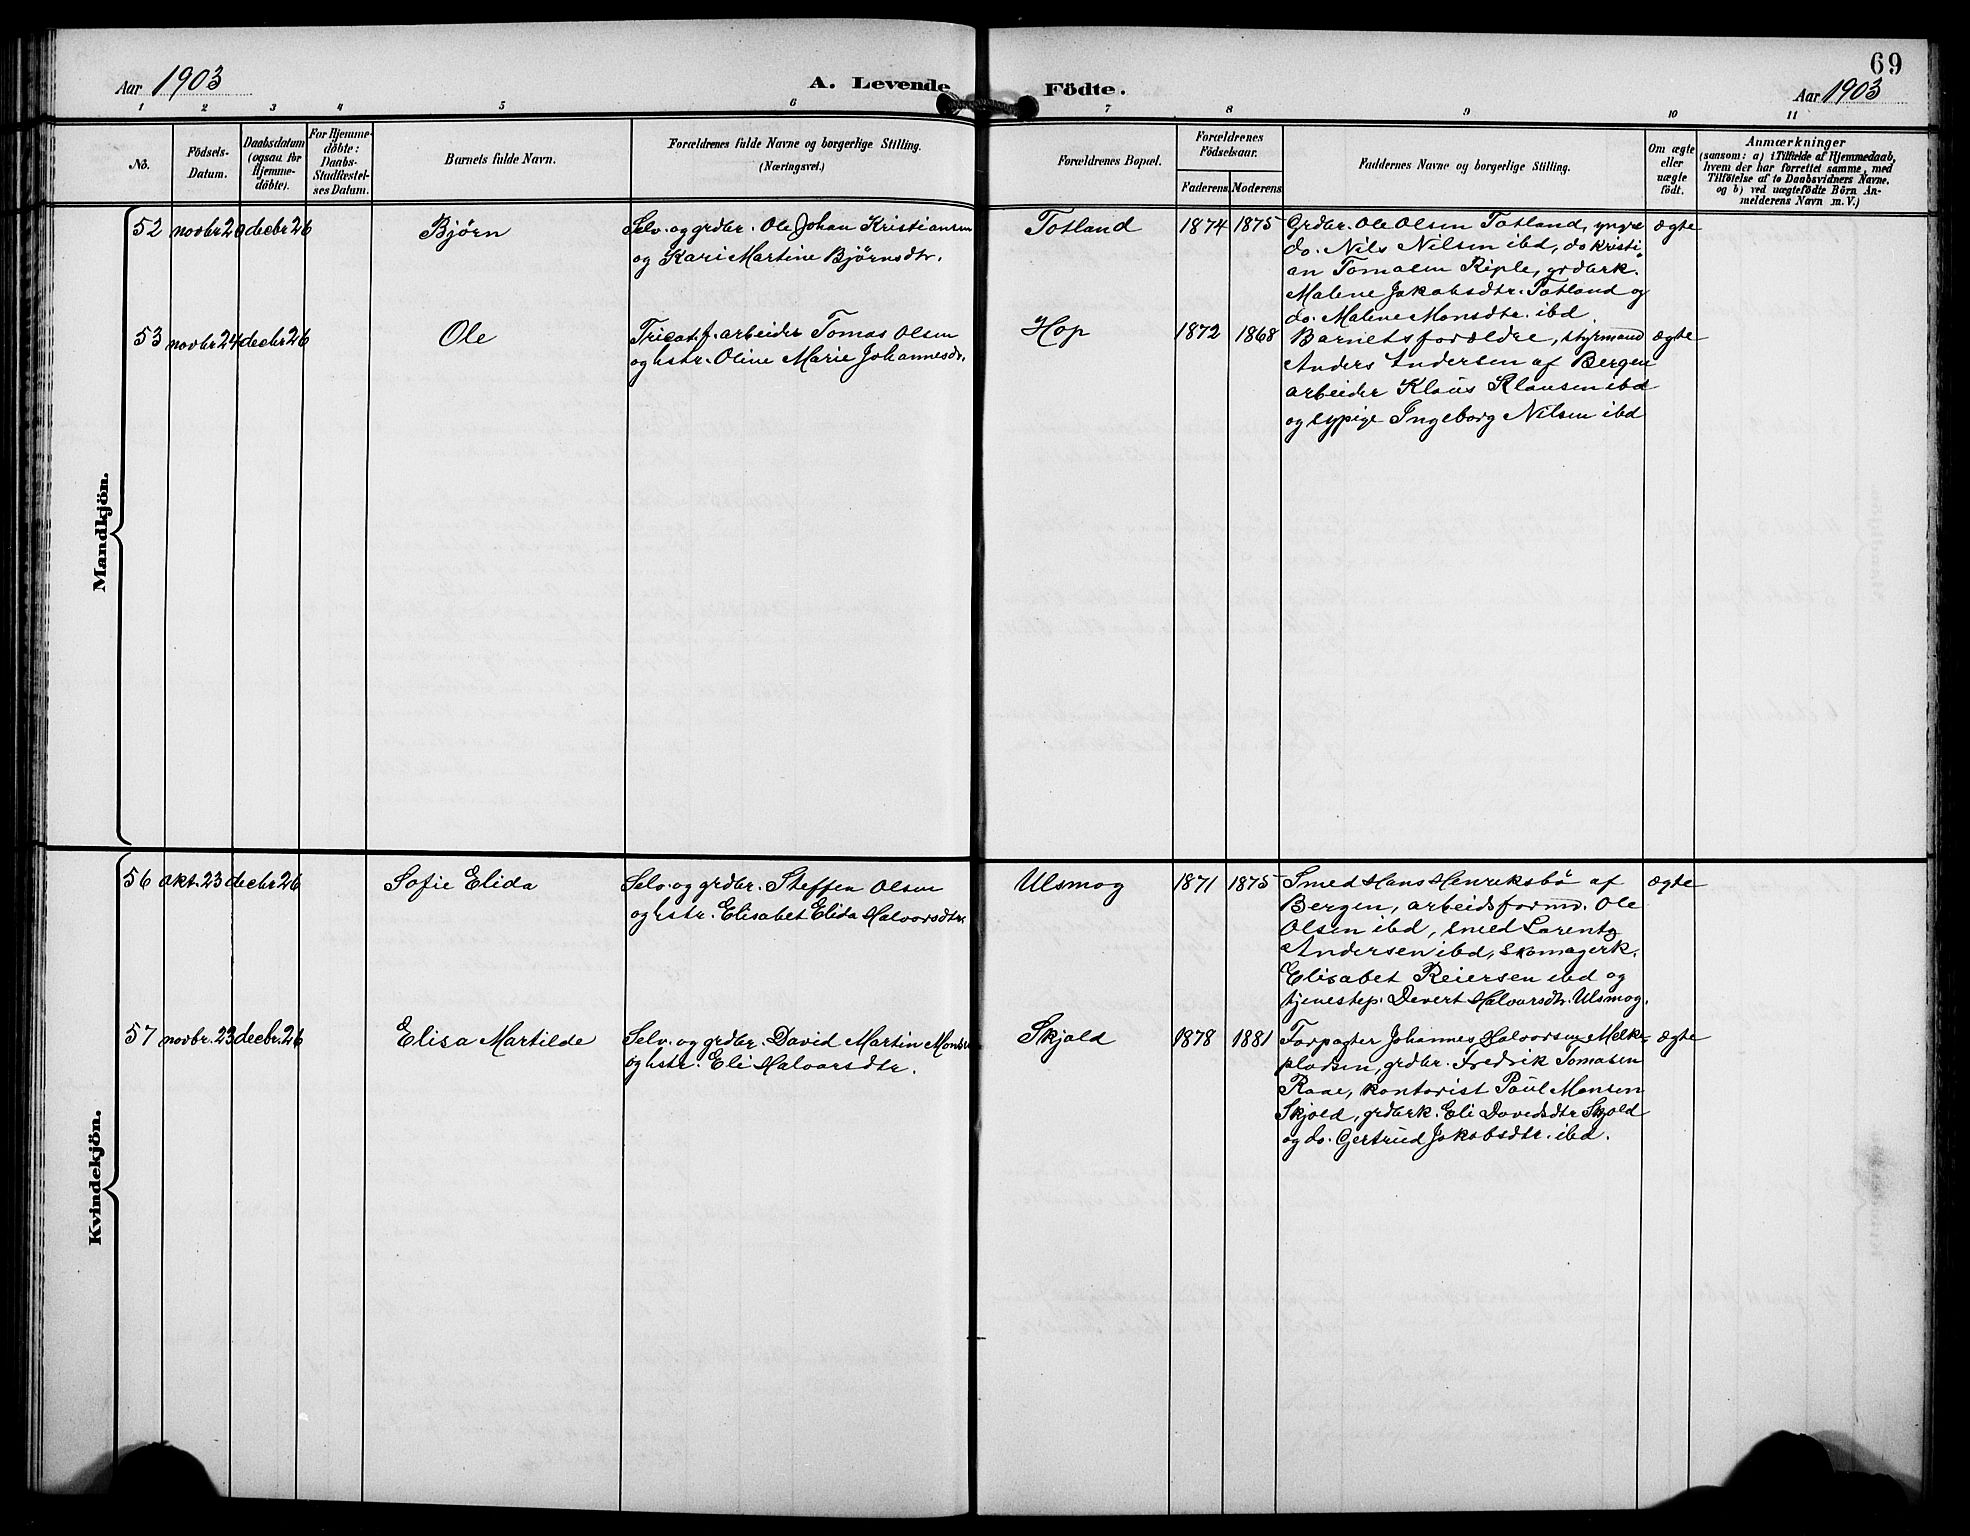 69
Aar 1903
A. Levende Födte.
Aar 1903
1 2 3 4 5 6 7 8 9 10 11
Nö.
Födsels-
Datum.
Daabsdatum
(ogsaa for
Hjemme-
döbte).
For Hjemme-
döbte:
Daabs-
Stadfæstel-
ses Datum.
Barnets fulde Navn.
Forældrenes fulde Navne og borgerlige Stilling.
(Næringsvei.)
Forældrenes Bopæl.
Forældrenes
Födselsaar.
Faderens. Moderens.
Faddernes Navne og borgerlige Stilling.
Om ægte
eller
uægte
födt.
Anmærkninger
(saasom: a) i Tilfælde af Hjemmedaab,
hvem der har forrettet samme, med
Tilföielse af to Daabsvidners Navne,
og b) ved uægtefödte Börn An-
melderens Navn m. V.)
Mandkjön.
52 novbr 20 decbr 26
Bjørn
Selv. og grdbr. Ole Johan Kristiansen
og Kari Martine Bjørnsdtr.
Totland
1874 1875
Grdbr. Ole Olsen Totland, yngre
do. Nils Nilsen ibd, do Kristi-
an Tomasen Riple, grdbrk.
Malene Jakobsdtr. Totland og
do. Malene Monsdtr. ibd.
ægte
53 novbr 24 decbr 26
Ole
Tricot.f. arbeider Tomas Olsen
og hstr. Oline Marie Johannesdr.
Hop
1872 1868
Barnets forældre, styrmand
Anders Andersen af Bergen
arbeider Klaus Klausen ibd
og sypige Ingeborg Nilsen ibd
ægte
Kvindekjön.
56 okt. 23 decbr 26
Sofie Elida
Selv. og grdbr. Steffen Olsen
og hstr. Elisabet Elida Halvorsdtr.
Ulsmog
1871 1875
Smed Hans Henriksbö af
Bergen, arbeidsformd. Ole
Olsen ibd, smed Lorentz
Andersen ibd, skomagerk.
Elisabet Reiersen ibd og
tjenestep. Devert Halvorsdtr. Ulsmog.
ægte
57 novbr. 23 decbr. 26
Elisa Martilde
Selv. og grdbr. David Martin Monsen
og hstr. Eli Halvorsdtr.
Skjold
1878 1881
Forpagter Johannes Halvorsen Melke-
pladsen, grdbr. Fredrik Tomasen
Raae, kontorist Paul Monsen
Skjold, grdbrk. Eli Davidsdtr Skjold
og do. Gertrud Jakobsdtr. ibd.
ægte